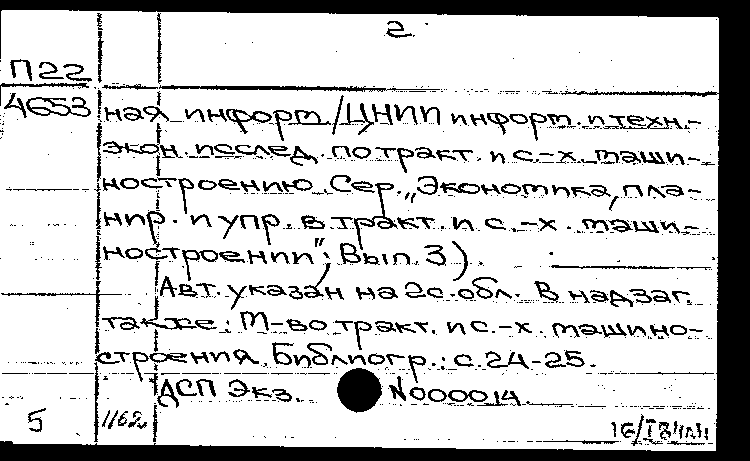 2.
П22
4653 ная информ./ЦНИИ информ. и техн.-
экон. исслед. по тракт. и с.-х. маши-
ностроению. Сер. „Экономика, пла-
нир. и упр. в тракт. и с.-х. маши-
ностроении"; Вып. 3).
Авт. указан на 2 с. обл. В надзаг.
также: М-во тракт. и с.-х. машино-
строения. Библиогр.: с. 24-25.
ДСП Экз. N000014.
5 1162